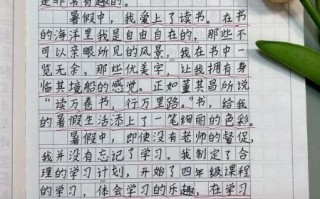 是非常有趣的。
暑假中，我爱上了读书。在书
的海洋里我是自由自在的，那些不
可以亲眼所见的风景，我在书中一
览无余，那些优美字，让我拥有身
临其境船的感觉。正如董其昌所说
“读万卷书，行万里路。”书，给我
的暑假生活添上了一笔绚丽的色彩。
暑假中，即使没有老师的督促，
我并没有忘记了学习。我制定了合
理的学习计划，开始了四年级课程
的学习，体会学习的乐趣，在学习